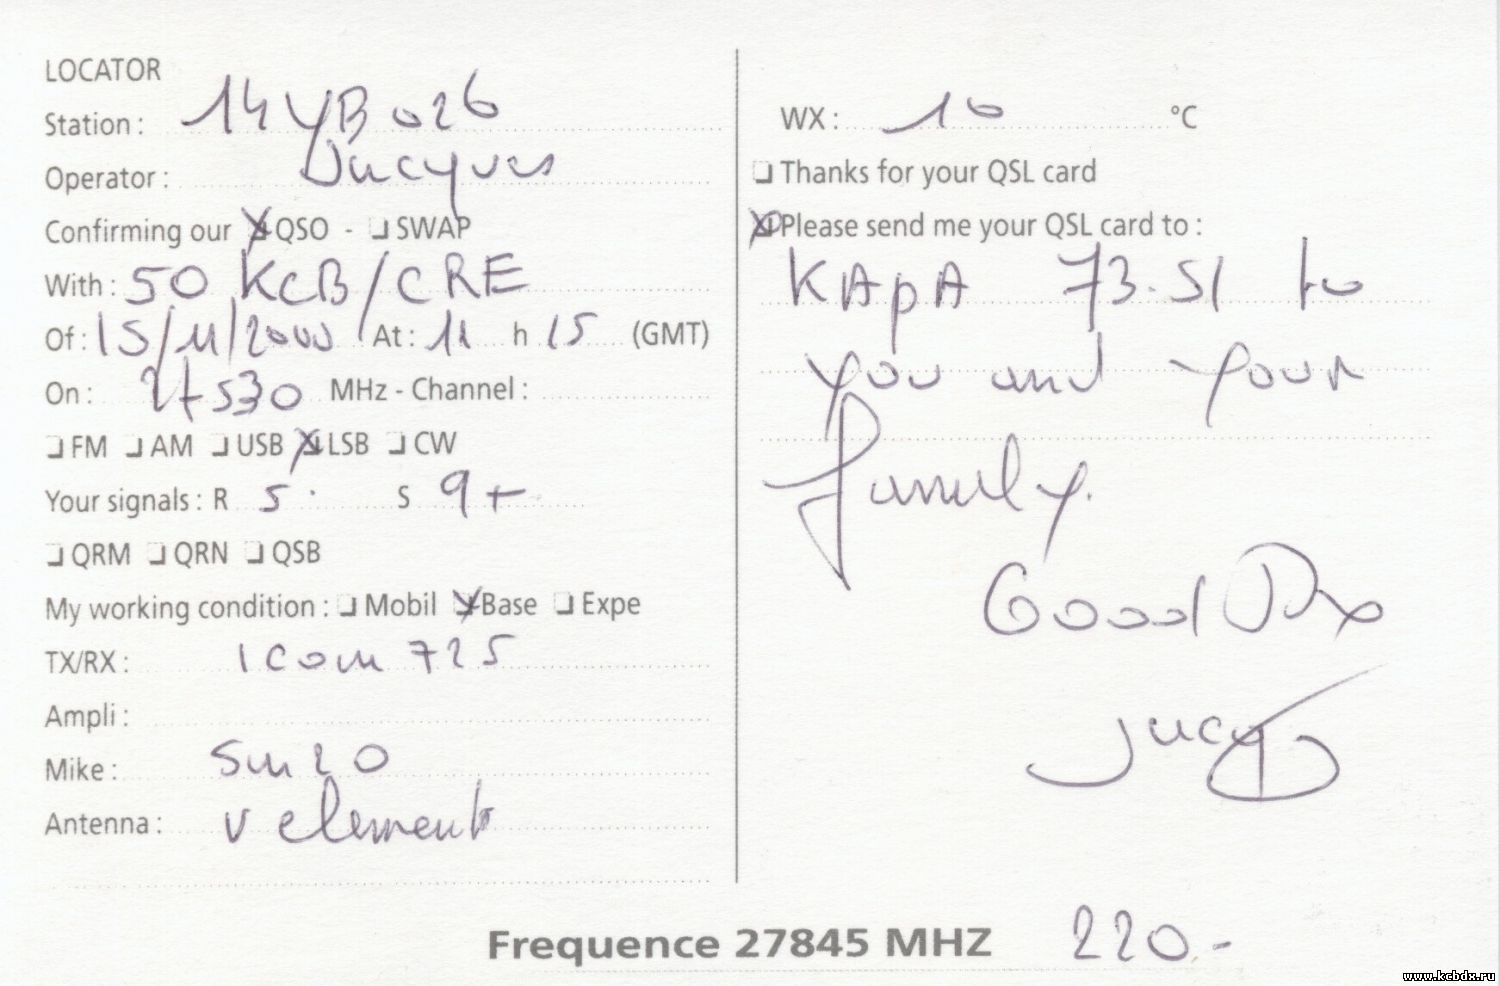 LOCATOR
Station : 14 YB 026
Operator :
Confirming our QSO - SWAP
With : 50 KCB/CRE
Of : 15/11/2000 At : 11 h 15 (GMT)
On : 27530 MHz - Channel :
FM AM USB LSB CW
Your signals : R 5 S 9+
QRM QRN QSB
My working condition : Mobil Base Expe
TX/RX : Icom 725
Ampli :
Mike : Sm20
Antenna : V element
WX : 10 °C
Thanks for your QSL card
Please send me your QSL card to :
KApA 73.51 to
you and your
family.
Good Dx
Frequence 27845 MHZ 220.-
www.kcbdx.ru